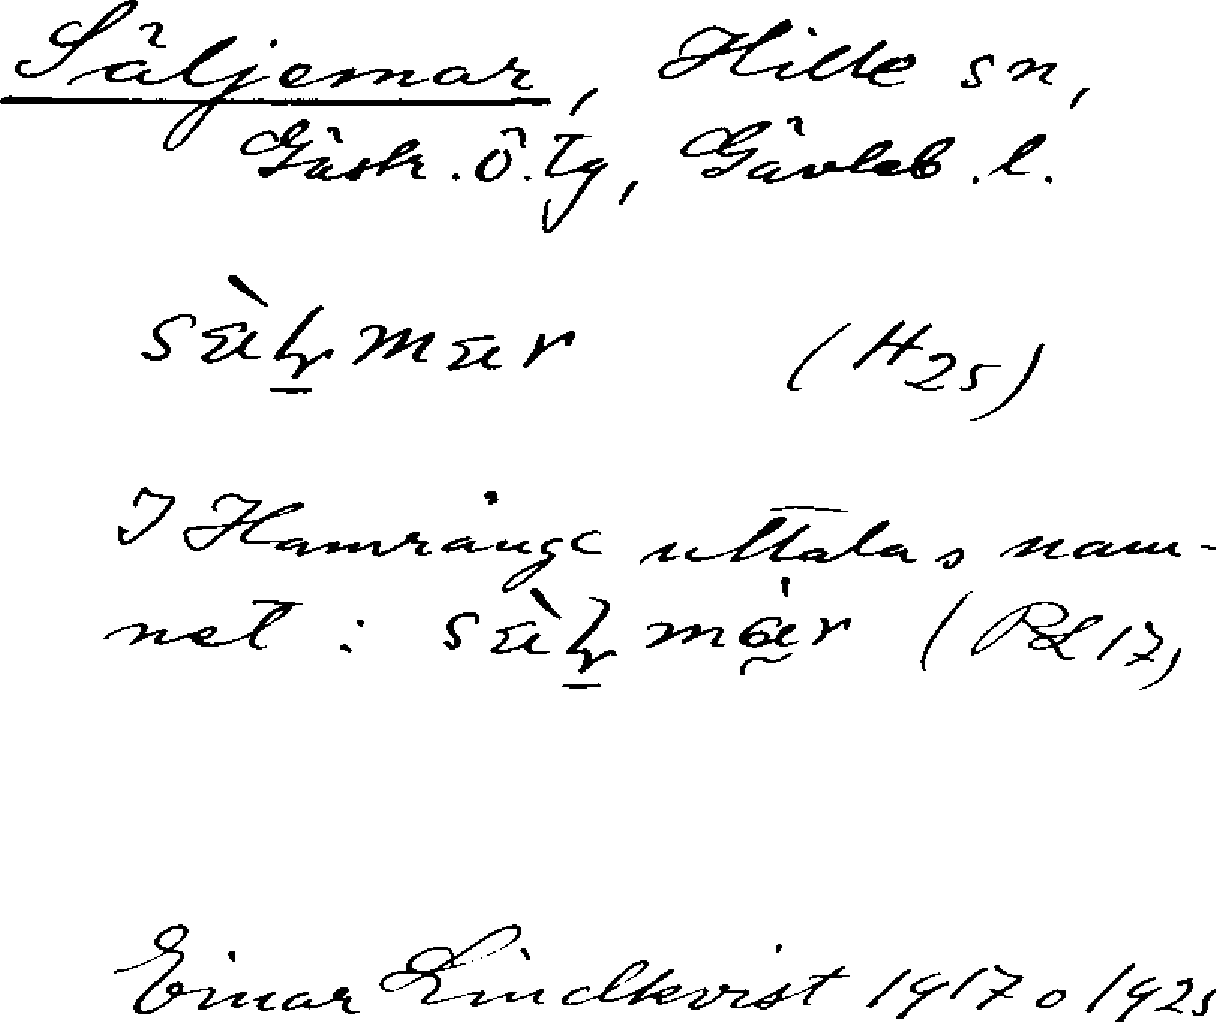 Säljemar, Hille sn,
Gästr. ö. tg, Gävleb. l.
(H25)
I Hamrånge uttalas nam-
net: (PL 17,
Einar Lindkvist 1917 o 1925